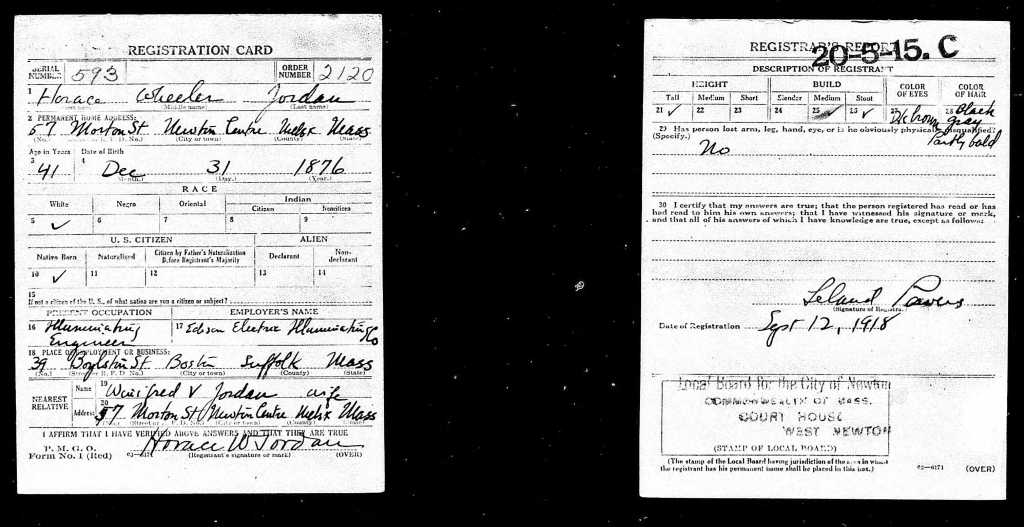 REGISTRATION CARD
SERIAL NUMBER 593 ORDER NUMBER 2120
1 Horace Wheeler Jordan
(Middle name) (Last name)
2 PERMANENT HOME ADDRESS:
57 Morton St Newton Centre Midsx Mass
(No.) (City or town) (County) (State)
Age in Years Date of Birth
3 41 4 Dec 31 1876
(Month.) (Day.) (Year.)
RACE
White Negro Oriental Indian
Citizen Noncitizen
5 ✓ 6 7 8 9
U. S. CITIZEN ALIEN
Native Born Naturalized Citizen by Father's Naturalization Before Registrant's Majority Declarant Non-declarant
10 ✓ 11 12 13 14
15
If not a citizen of the U. S., of what nation are you a citizen or subject?
PRESENT OCCUPATION EMPLOYER'S NAME
16 Illuminating Engineer 17 Edison Electric Illuminating Co
18 PLACE OF EMPLOYMENT OR BUSINESS:
39 Boylston St Boston Suffolk Mass
(No.) (Street or R. F. D. No.) (City or town) (County) (State)
NEAREST RELATIVE
Name 19 Winifred V Jordan wife
Address 20 57 Morton St Newton Centre Midsx Mass
(No.) (Street or R. F. D. No.) (City or town) (County) (State)
I AFFIRM THAT I HAVE VERIFIED ABOVE ANSWERS AND THAT THEY ARE TRUE
P. M. G. O.
Form No. 1 (Red) Horace W Jordan
(Registrant's signature or mark) (OVER)
REGISTRAR'S REPORT
20-5-15. C
DESCRIPTION OF REGISTRANT
HEIGHT BUILD COLOR OF EYES COLOR OF HAIR
Tall Medium Short Slender Medium Stout
21 ✓ 22 23 24 25 26 ✓ 27 Dk brown 28 Black gray
Partly bald
29 Has person lost arm, leg, hand, eye, or is he obviously physically disqualified?
(Specify.) No
30 I certify that my answers are true; that the person registered has read or has
had read to him his own answers; that I have witnessed his signature or mark,
and that all of his answers of which I have knowledge are true, except as follows:
Leland Powers
(Signature of Registrar)
Date of Registration Sept 12, 1918
Local Board for the City of Newton
COMMONWEALTH OF MASS.
COURT HOUSE
WEST NEWTON
(STAMP OF LOCAL BOARD)
(The stamp of the Local Board having jurisdiction of the area in which
the registrant has his permanent home shall be placed in this box.) 63-6171 (OVER)